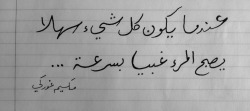 عندما يكون كل شيء سهلا
يصبح المرء غبيا بسرعة ...
مكسيم غوركي